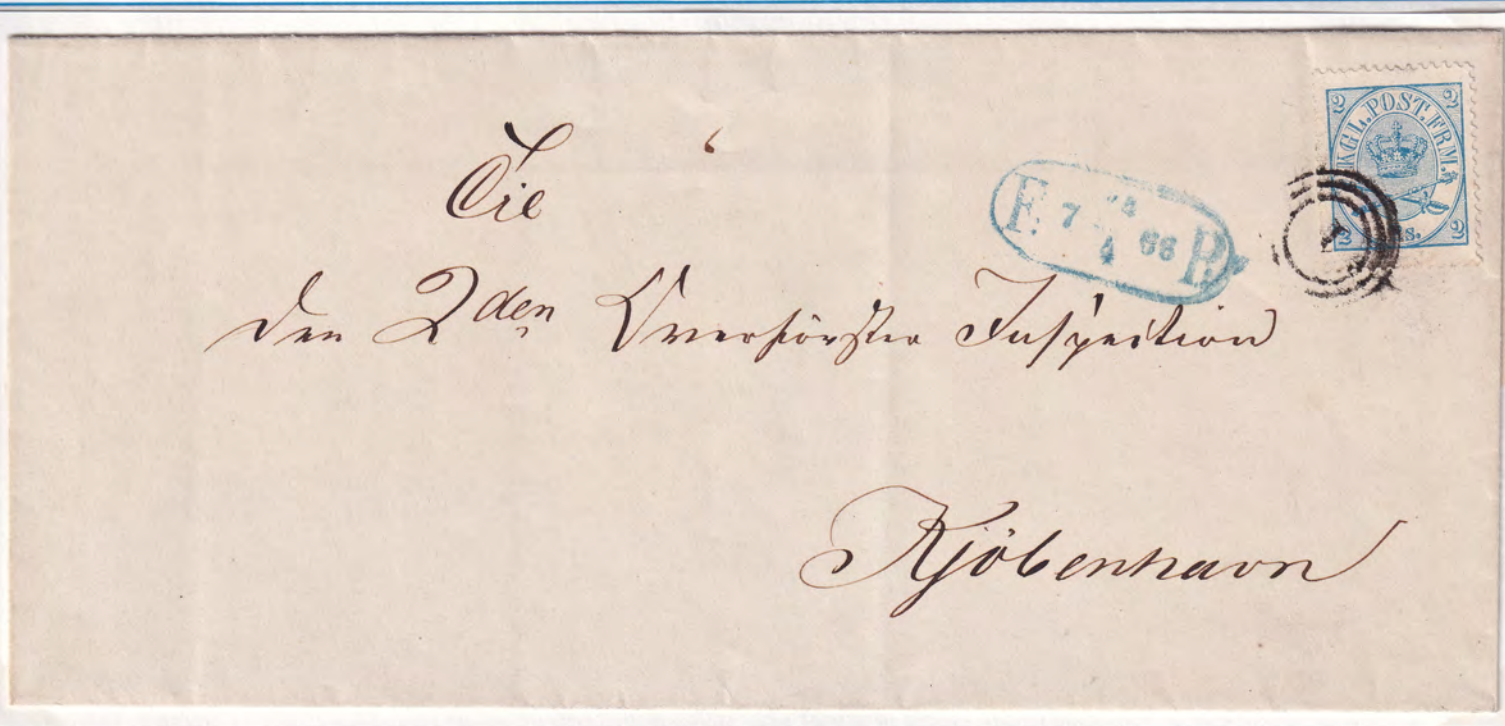 Til
den 2den Overförster Inspection
Kjöbenhavn
F. 7 4 68 P.
2 KGL. POST. FRM. 2
2 2
1